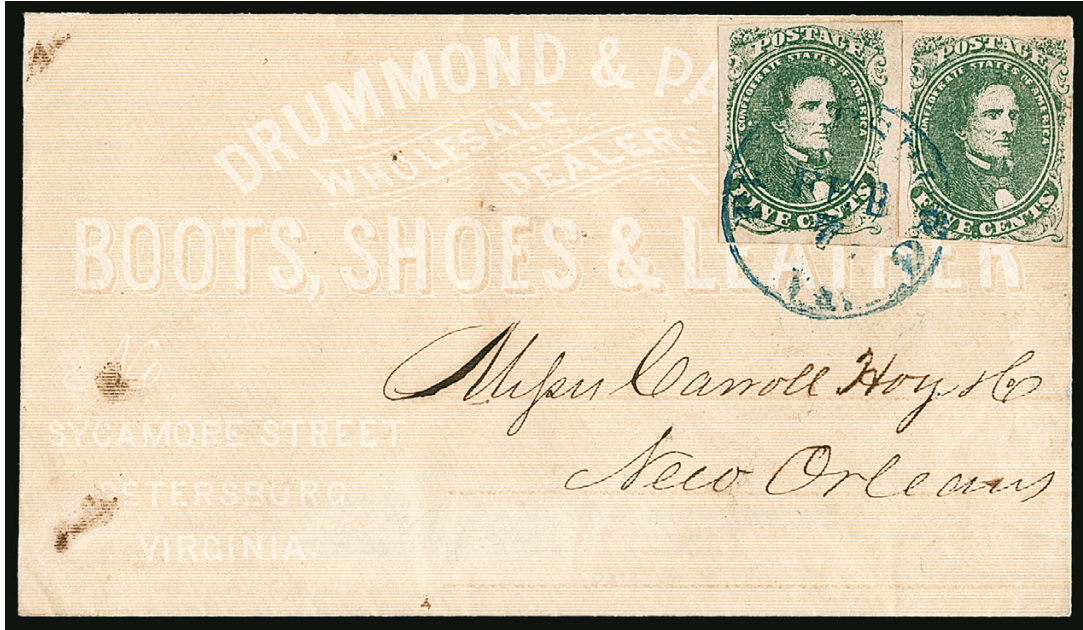 DRUMMOND &
WHOLESALE
DEALERS
BOOTS, SHOES & LEATHER
No.
SYCAMORE STREET
PETERSBURG
VIRGINIA.
POSTAGE
CONFEDERATE STATES OF AMERICA
FIVE CENTS
POSTAGE
CONFEDERATE STATES OF AMERICA
FIVE CENTS
FEB
Messrs Carroll Hoy & Co
New Orleans